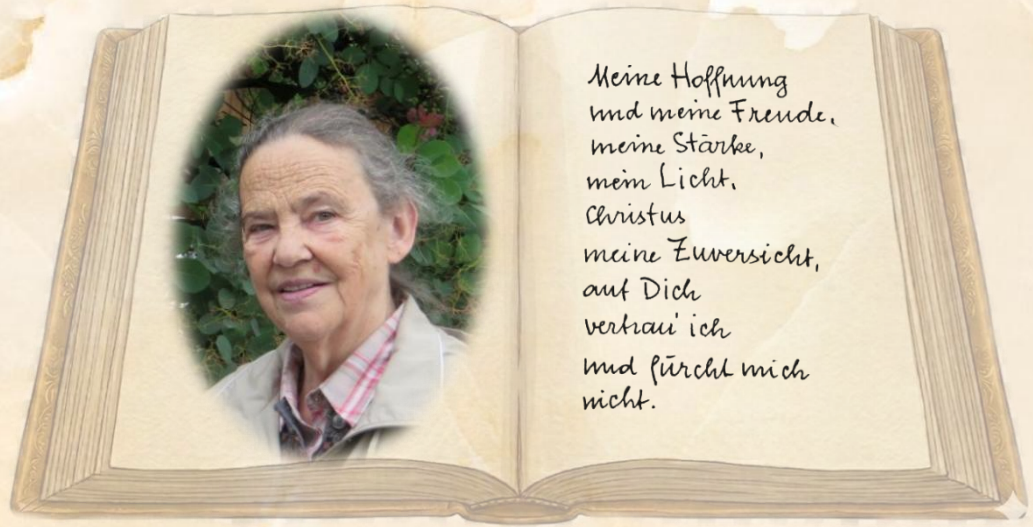 Meine Hoffnung
und meine Freude,
meine Stärke,
mein Licht.
Christus
meine Zuversicht,
auf Dich
vertrau' ich
und fürcht mich
nicht.